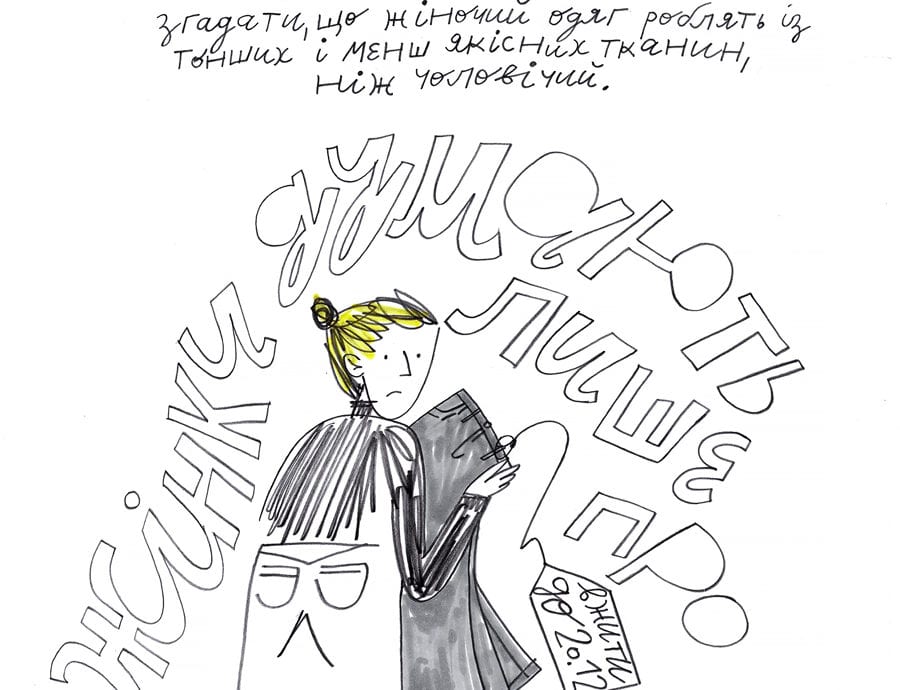 згадати, що жіночий одяг роблять із
тонших і менш якісних тканин,
ніж чоловічий.
Жінки думають
лише про
вжити
до 20.12